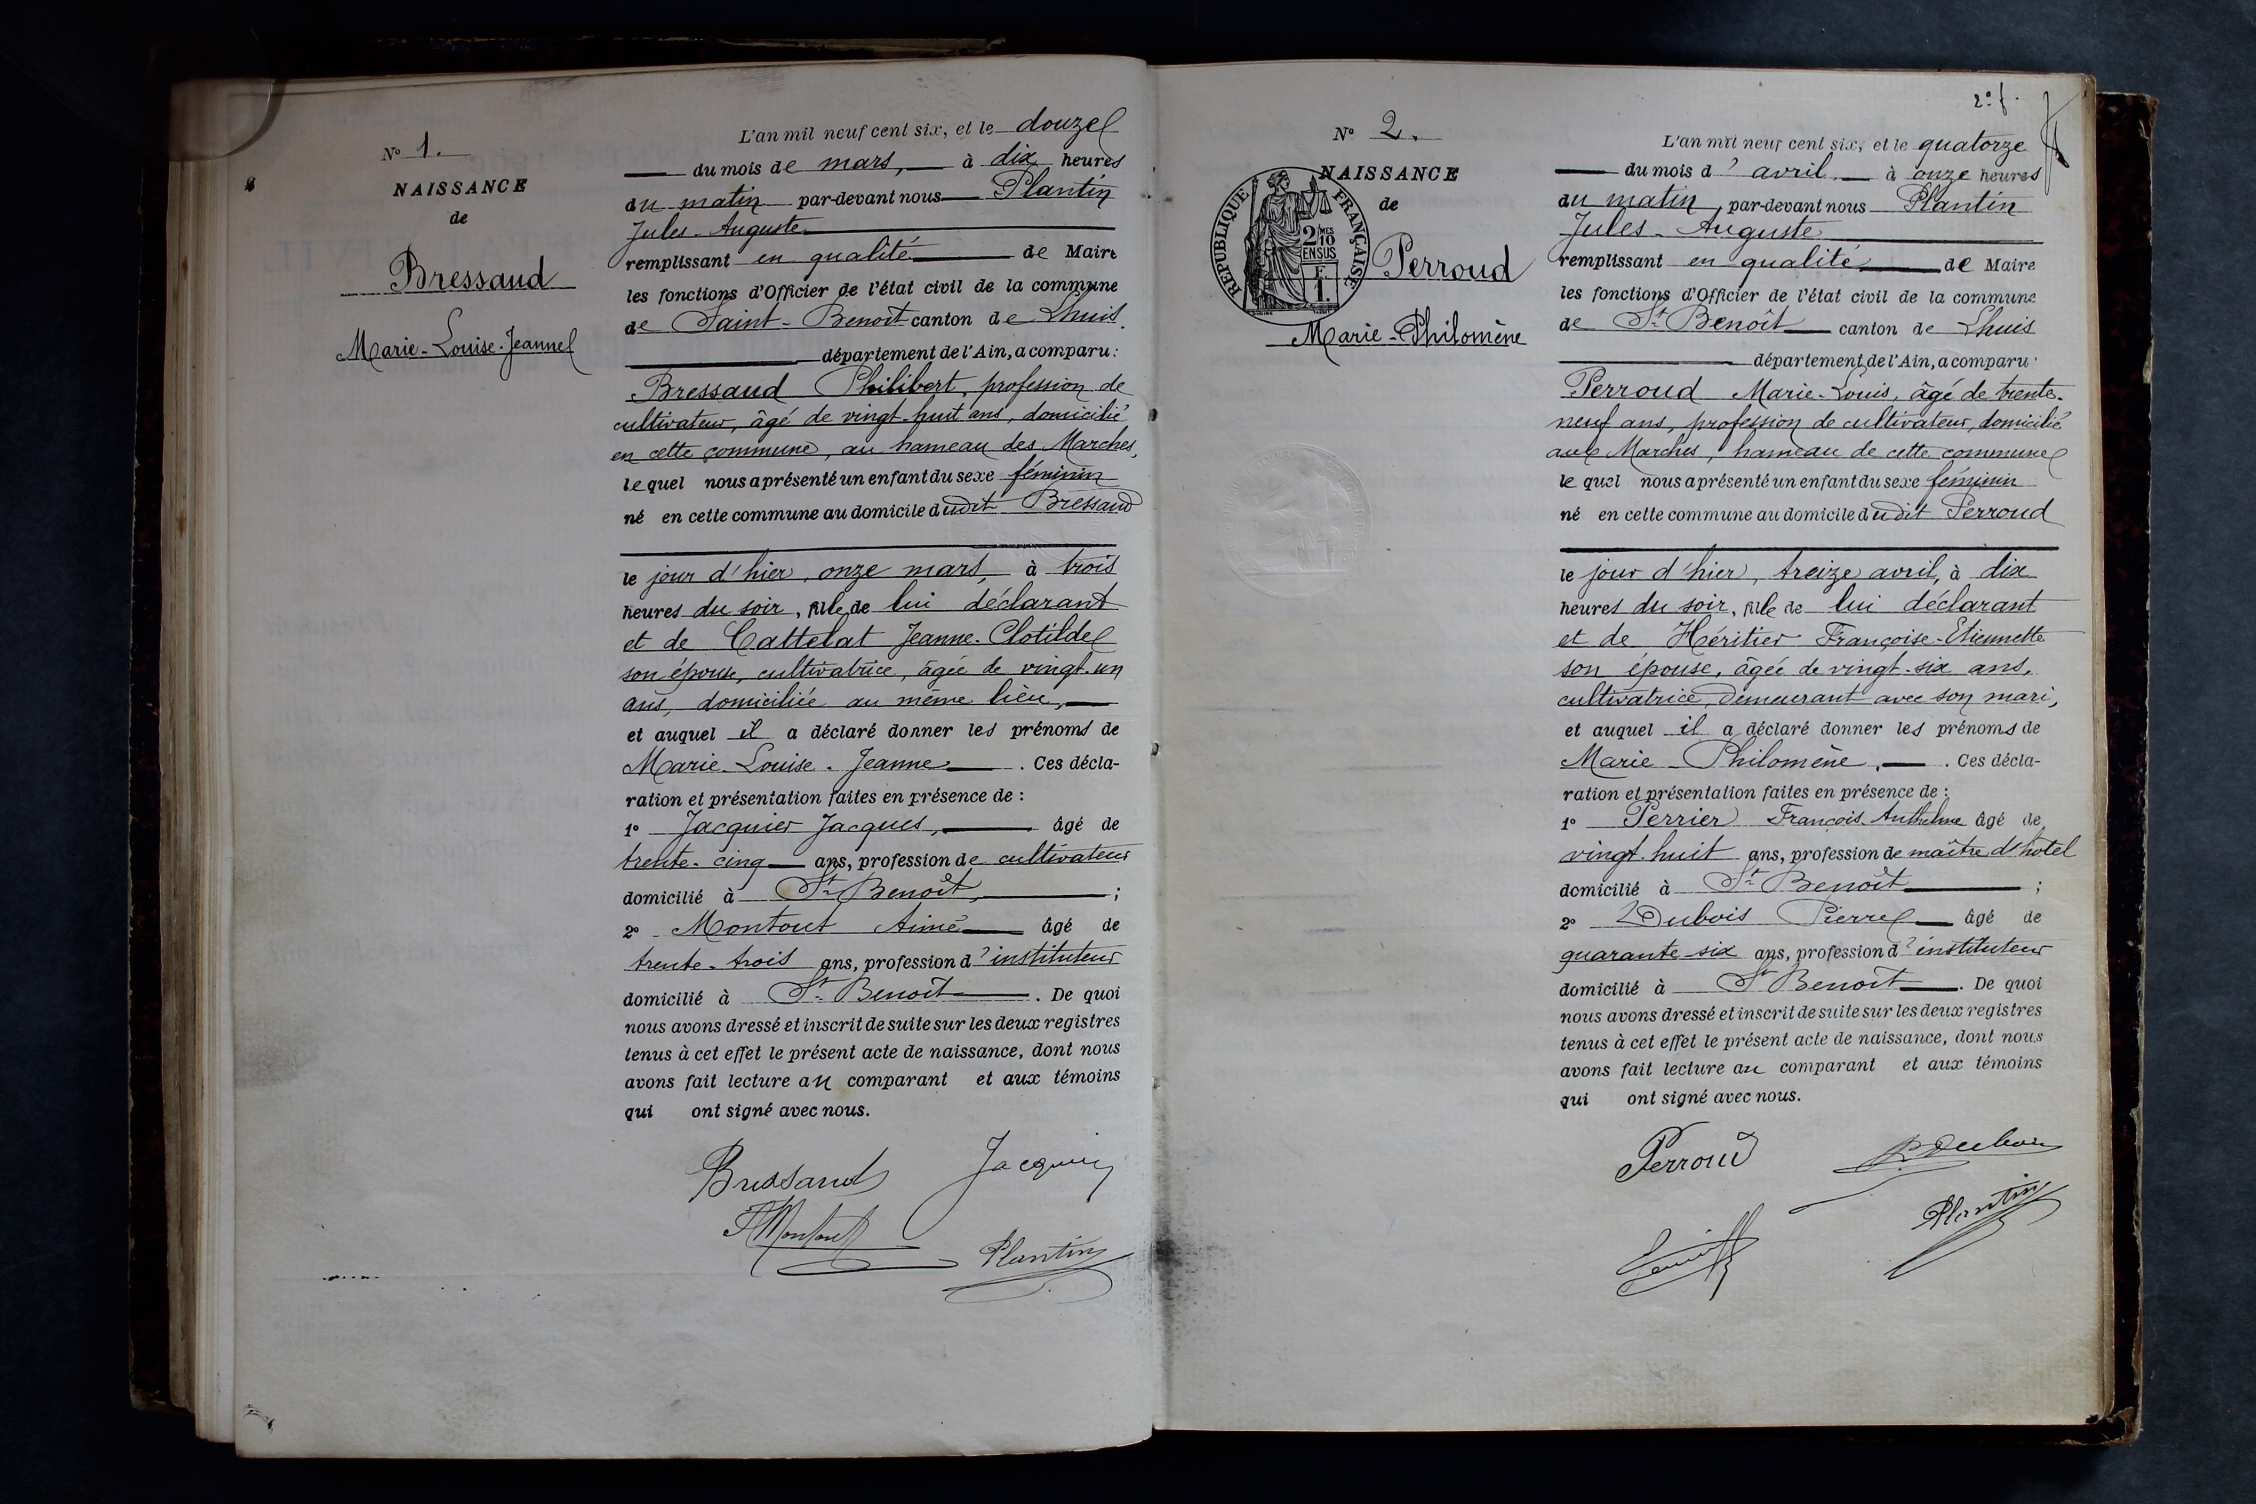 N° 1.
NAISSANCE
de
Bressaud
Marie-Louise-Jeanne
L'an mil neuf cent six, et le douze
du mois de mars, à dix heures
du matin par-devant nous Plantin
Jules-Auguste
remplissant en qualité de Maire
les fonctions d'Officier de l'état civil de la commune
de Saint-Benoît canton de Lhuis.
département de l'Ain, a comparu :
Bressaud Philibert, profession de
cultivateur, âgé de vingt-huit ans, domicilié
en cette commune, au hameau des Marches,
lequel nous a présenté un enfant du sexe féminin
né en cette commune au domicile dudit Bressaud
le jour d'hier, onze mars, à trois
heures du soir, fille de lui déclarant
et de Cattelat Jeanne-Clotilde
son épouse, cultivatrice, âgée de vingt-un
ans, domiciliée au même lieu,
et auquel il a déclaré donner les prénoms de
Marie-Louise-Jeanne. Ces décla-
ration et présentation faites en présence de :
1° Jacquier Jacques, âgé de
trente-cinq ans, profession de cultivateur
domicilié à St-Benoît, ;
2° Montout Aimé âgé de
trente-trois ans, profession d'instituteur
domicilié à St-Benoît. De quoi
nous avons dressé et inscrit de suite sur les deux registres
tenus à cet effet le présent acte de naissance, dont nous
avons fait lecture au comparant et aux témoins
qui ont signé avec nous.
Bressaud Jacquier
AMontout
Plantin
2° f.
N° 2.
NAISSANCE
de
RÉPUBLIQUE FRANÇAISE
2/10 MES
EN SUS
1 F.
Perroud
Marie-Philomène
L'an mil neuf cent six, et le quatorze
du mois d'avril à onze heures
du matin, par-devant nous Plantin
Jules-Auguste
remplissant en qualité de Maire
les fonctions d'Officier de l'état civil de la commune
de St-Benoît canton de Lhuis
département de l'Ain, a comparu :
Perroud Marie-Louis, âgé de trente-
neuf ans, profession de cultivateur, domicilié
aux Marches, hameau de cette commune
lequel nous a présenté un enfant du sexe féminin
né en cette commune au domicile dudit Perroud
le jour d'hier, treize avril, à dix
heures du soir, fille de lui déclarant
et de Héritier Françoise-Etiennette
son épouse, âgée de vingt-six ans,
cultivatrice, demeurant avec son mari,
et auquel il a déclaré donner les prénoms de
Marie-Philomène. Ces décla-
ration et présentation faites en présence de :
1° Perrier François-Anthelme âgé de
vingt-huit ans, profession de maître d'hôtel
domicilié à St-Benoît ;
2° Dubois Pierre âgé de
quarante-six ans, profession d'instituteur
domicilié à St Benoît. De quoi
nous avons dressé et inscrit de suite sur les deux registres
tenus à cet effet le présent acte de naissance, dont nous
avons fait lecture au comparant et aux témoins
qui ont signé avec nous.
Perroud P Dubois
Plantin